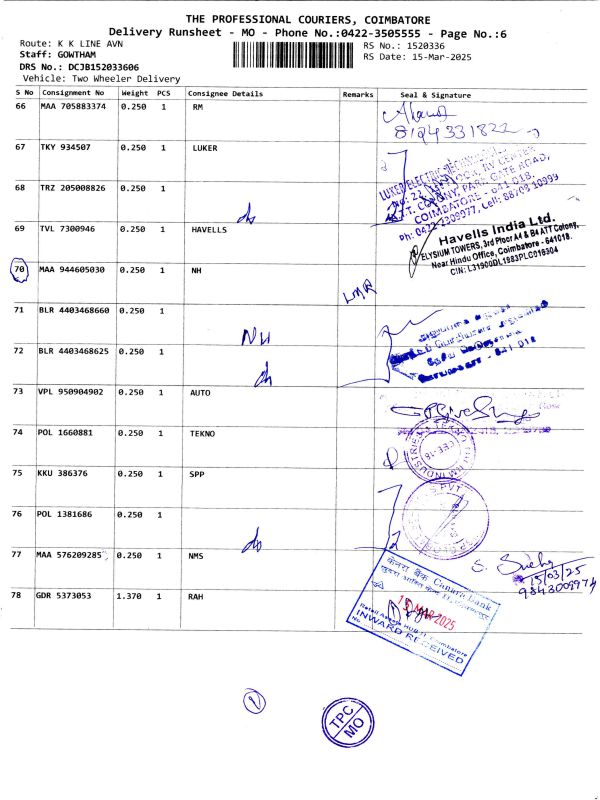 THE PROFESSIONAL COURIERS, COIMBATORE
Delivery Runsheet - MO - Phone No.:0422-3505555 - Page No.:6
Route: K K LINE AVN
RS No.: 1520336
Staff: GOWTHAM
RS Date: 15-Mar-2025
DRS No.: DCJB152033606
Vehicle: Two Wheeler Delivery
S No Consignment No Weight PCS Consignee Details Remarks Seal & Signature
66 MAA 705883374 0.250 1 RM
8124331822
67 TKY 934507 0.250 1 LUKER
68 TRZ 205008826 0.250 1
do
COIMBATORE - 641 018.
69 TVL 7300946 0.250 1 HAVELLS
Havells India Ltd.
ELYSIUM TOWERS, 3rd Floor A4 & B4 ATT Colony,
Near Hindu Office, Coimbatore - 641018.
CIN: L31900DL1983PLC016304
70 MAA 944605030 0.250 1 NH
71 BLR 4403468660 0.250 1
72 BLR 4403468625 0.250 1
73 VPL 950904902 0.250 1 AUTO
74 POL 1660881 0.250 1 TEKNO
75 KKU 386376 0.250 1 SPP
76 POL 1381686 0.250 1
do
77 MAA 576209285 0.250 1 NMS
15/03/25
78 GDR 5373053 1.370 1 RAH
केनरा बैंक Canara Bank
15 MAR 2025
Retail Assets HUB II Coimbatore
INWARD RECEIVED
No
TPC
MO